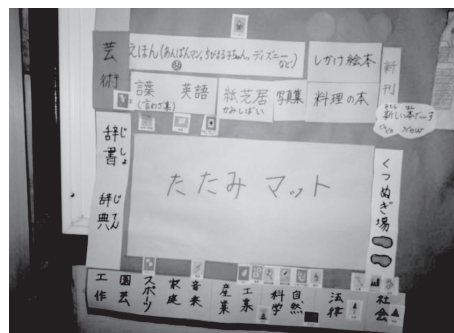 えほん(あんぱんマン、ちびまる子ちゃん、ディズニーなど)
しかけ絵本
新刊
芸術
英語
紙芝居
かみしばい
写真集
料理の本
新しい本でーす
じしょ
辞書
じてん
辞典
たたみ マット
くつぬぎ場
工作
園芸
スポーツ
家庭
音楽
産業
工業
科学
自然
法律
社会